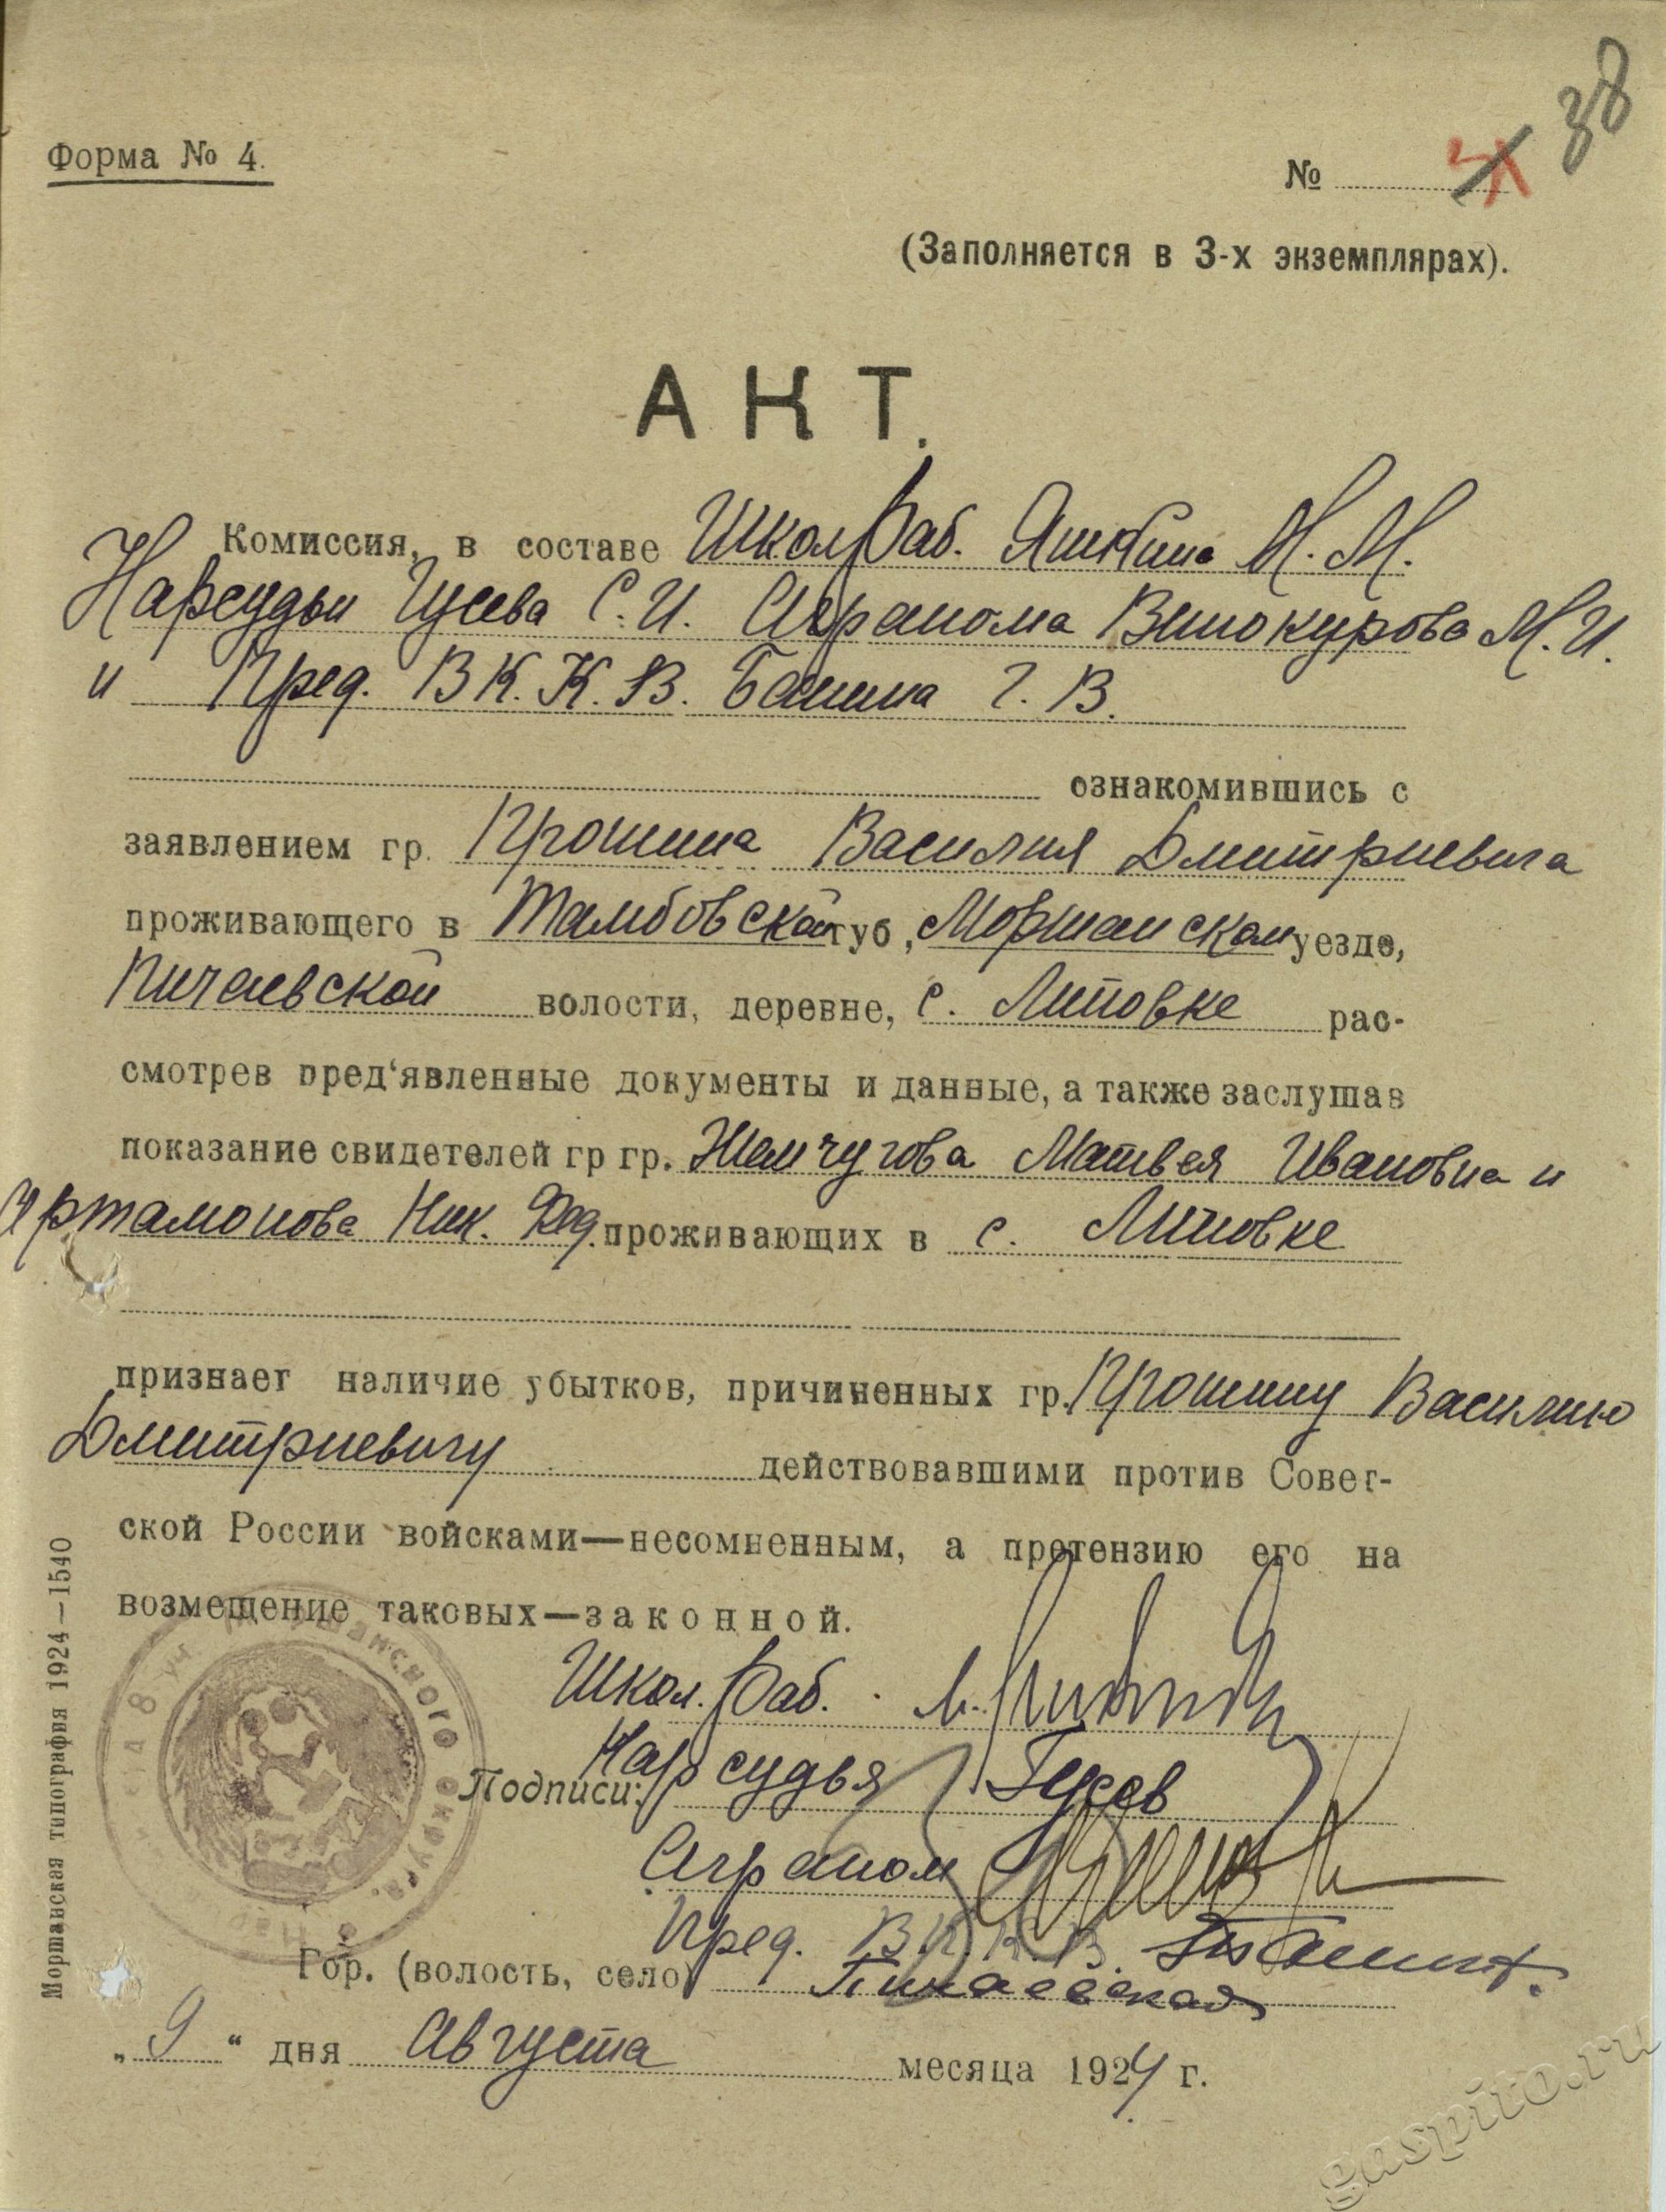 38
Форма № 4.
№
(Заполняется в 3-х экземплярах).
АКТ.
Комиссия, в составе Школ.Раб. Яшкина М. М.
Нарсудьи Гусева С. И. Агранома Винокурова М. И.
и Пред. В К. К. В. Банина Г. В.
ознакомившись с
заявлением гр. Прошина Василия Дмитриевича
проживающего в Тамбовской губ., Моршанском уезде,
Пичаевской волости, деревне, с. Липовке рас-
смотрев пред‘явленные документы и данные, а также заслушав
показание свидетелей гр гр. Жемчугова Матвея Ивановича и
Артамонова Ник. Фед. проживающих в с. Липовке
признает наличие убытков, причиненных гр. Прошину Василию
Дмитриевичу действовавшими против Совет-
ской России войсками—несомненным, а претензию его на
возмещение таковых—законной.
Школ. Раб.
Нарсудья Гусев
Подписи:
Аграном
Пред. В. К. К. В. Банин
Гор. (волость, село) Пичаевская
„ 9 “ дня Августа месяца 1924 г.
Моршанская типография 1924—1540
8 уч. Моршанского округа.
gaspito.ru